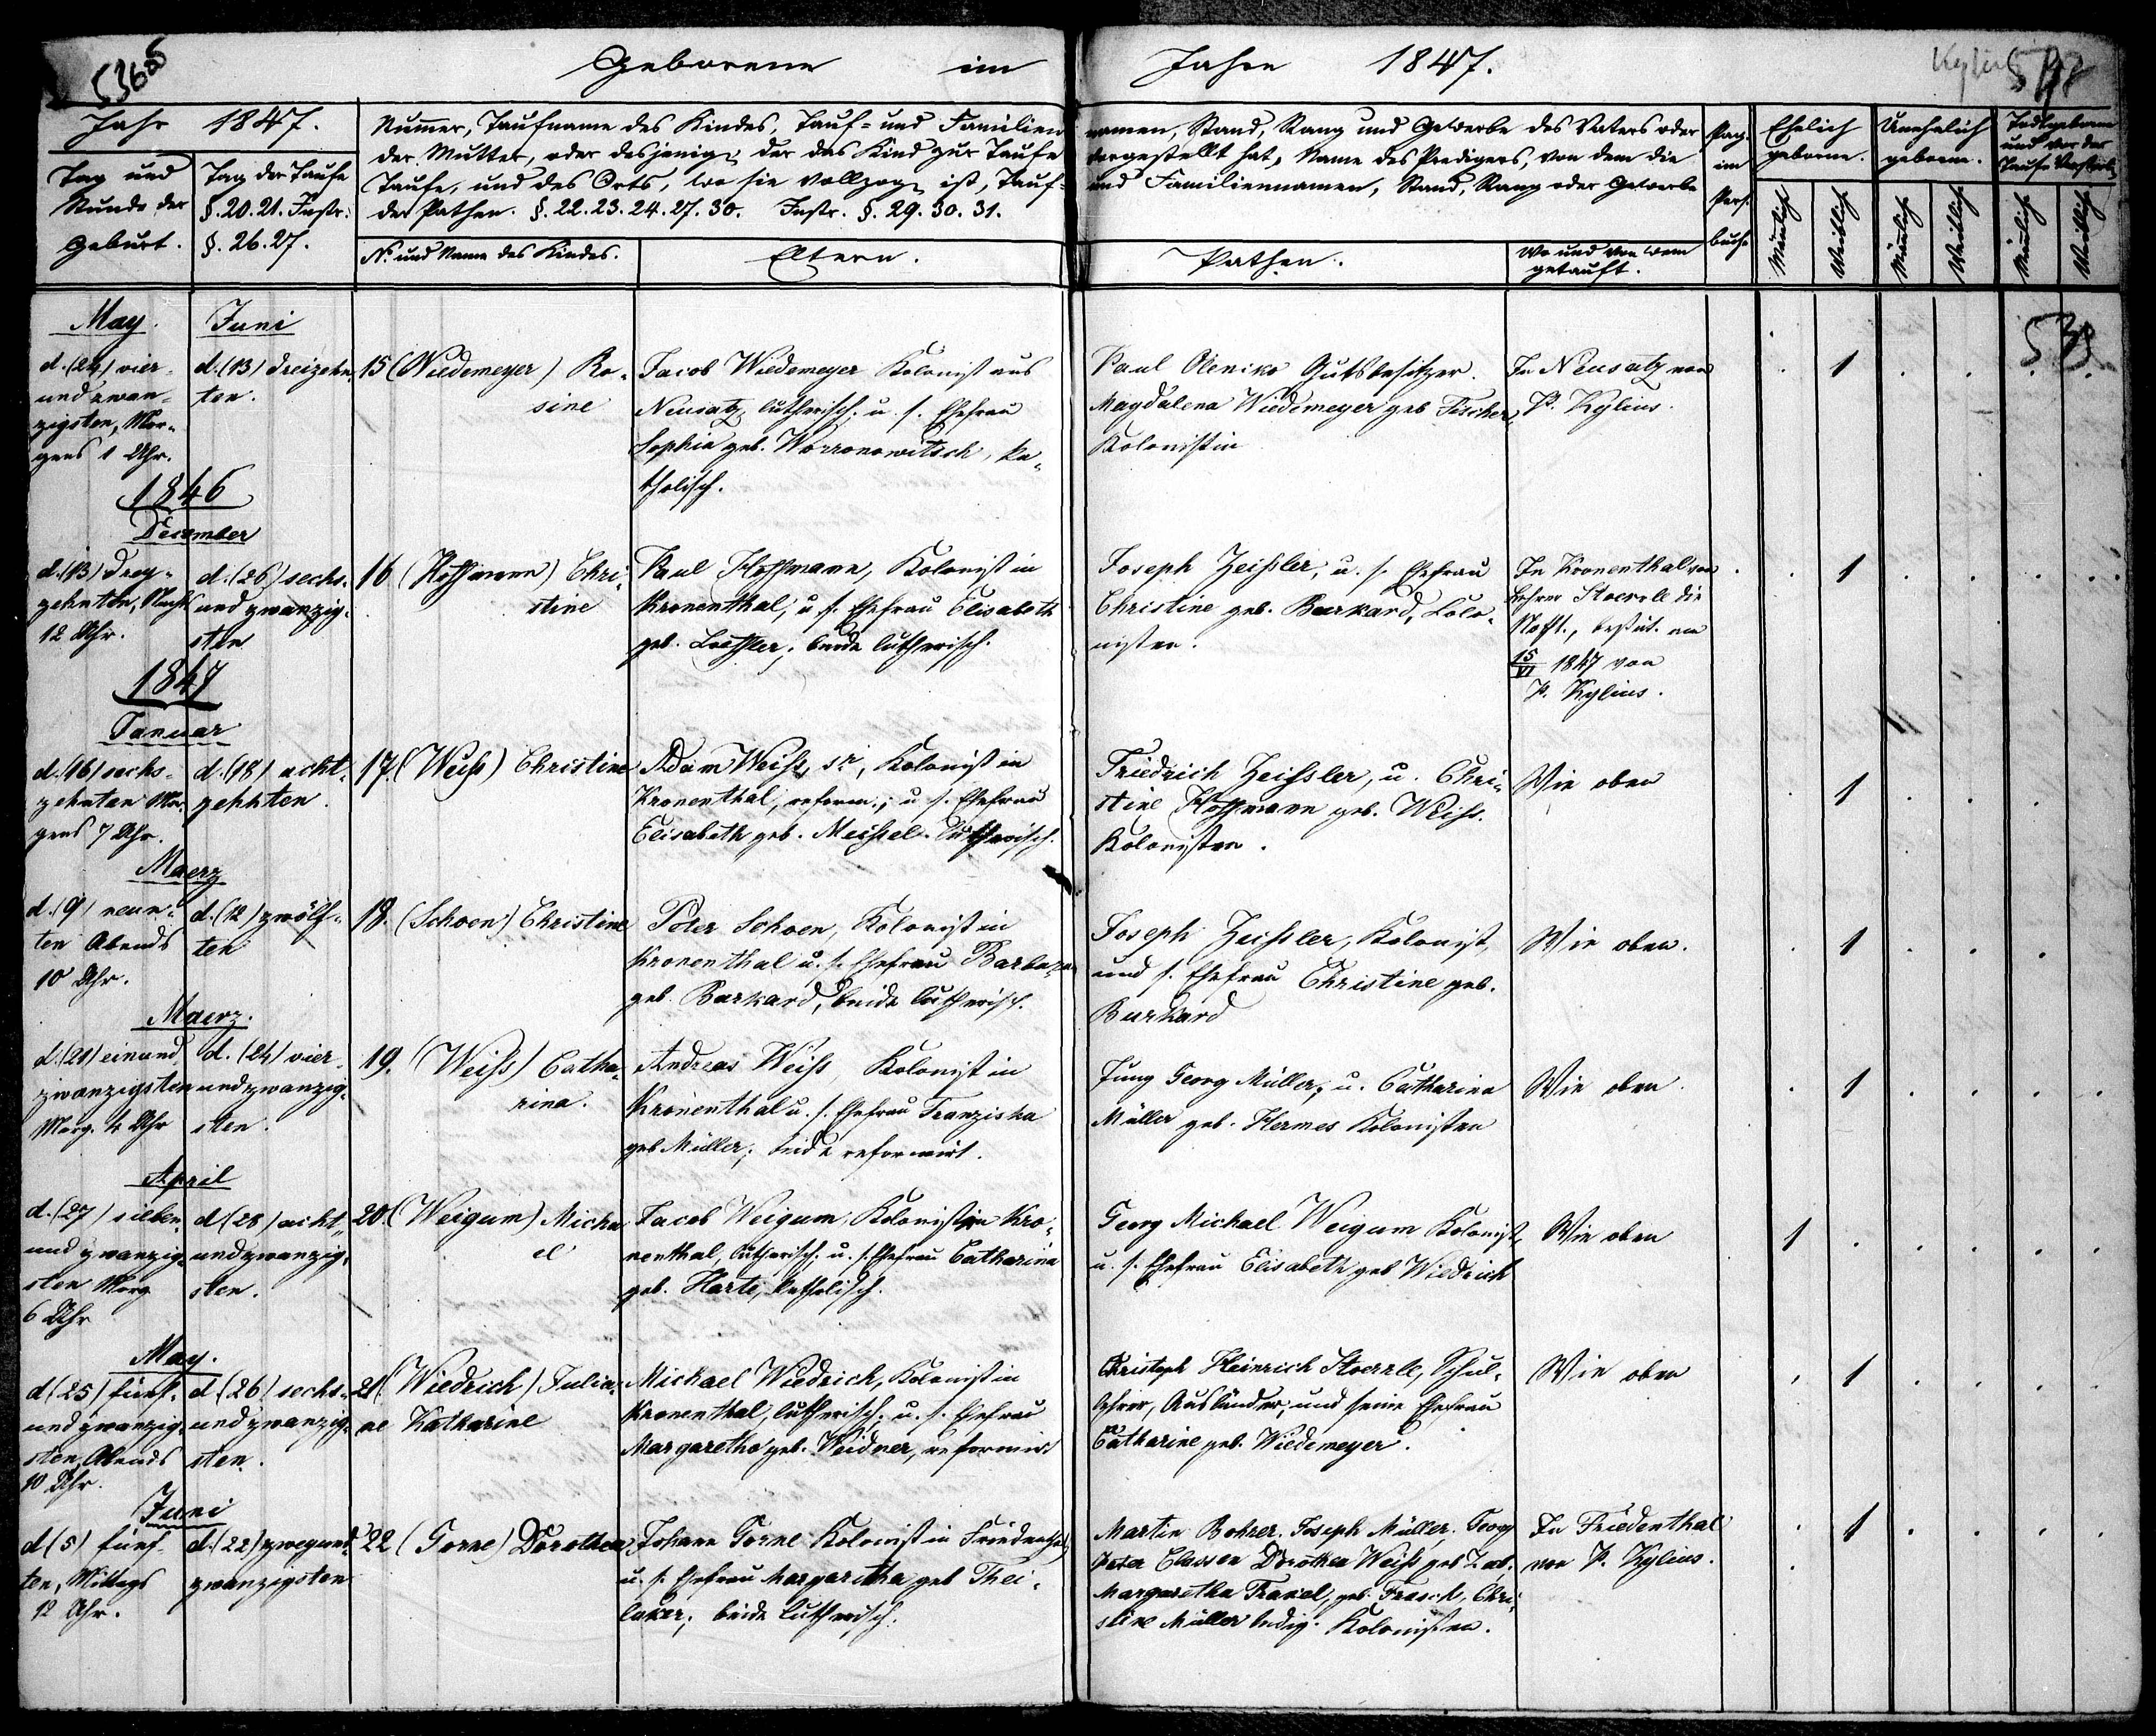 Geborene im Jahre 1847.
Jahr 1847.
Tag und
Stunde der
Geburt.
Tag der Taufe
§. 20. 21. Instr:
§. 26. 27.
Nummer, Taufname des Kindes, Tauf- und Familien
namen, Stand, Rang und Gewerbe des Vaters oder
der Mutter, oder desjenigen der das Kind zur Taufe
dargestellt hat, Name des Predigers, von dem die
Taufe, und des Orts, wo sie vollzogen ist, Tauf-
und Familiennamen, Stand, Rang oder Gewerbe
der Pathen. §. 22. 23. 24. 27. 30. Instr. §. 29. 30. 31.
No und Name des Kindes.
Eltern.
Pathen.
Wo und von wem
getauft.
Pag.
im
Pers.
buche
Ehelich
geborene.
Unehelich
geborene.
Todtgeborene
und vor der
Taufe Verstorb.
Mänlich
Weiblich
Mänlich
Weiblich
Mänlich
Weiblich
May.
Juni
d. (24) vier-
und zwan-
zigsten, Mor-
gens 1 Uhr.
d. (13) dreizehn-
ten.
15 (Wiedemeyer) Ro-
sine
Jacob Wiedemeyer Kolonist aus
Neusatz lutherisch. u. s. Ehefrau
Sophia geb. Worronowitsch, ka-
tholisch.
Paul Oleniko Gutsbesitzer.
Magdalena Wiedemeyer geb Fischer,
Kolonistin
In Neusatz von
P. Kylius.
1
1846
December
d. (13) drey-
zehnten, Nachts
12 Uhr.
d. (26) sechs-
und zwanzig-
sten
16 (Hoffmann) Chri-
stine
Paul Hoffmann, Kolonist in
Kronenthal, u. s. Ehefrau Elisabeth
geb. Loeffler; beide lutherisch.
Joseph Zeissler, u. s. Ehefrau
Christine geb. Burkard, Kolo-
nisten.
In Kronenthal von
Lehrer Stoerrle die
Notht., bestät. am
15/VI 1847 von
P. Kylius.
1
1847
Januar
d. (16) sechs-
zehnten Mor-
gens 7 Uhr.
d. (18) acht-
zehnten.
17. (Weiss) Christine
Adam Weiss, sr, Kolonist in
Kronenthal, reform.; u. s. Ehefrau
Elisabeth geb. Meissel. lutherisch.
Friedrich Zeissler, u. Chri-
stine Hoffmann geb. Weiss.
Kolonisten.
Wie oben
1
Maerz
d. (9) neun-
ten Abends
10 Uhr.
d. (12) zwölf-
ten
18. (Schoen) Christine
Peter Schoen, Kolonist in
Kronenthal u. s. Ehefrau Barbara
geb. Burkard, beide lutherisch.
Joseph Zeissler, Kolonist,
und s. Ehefrau Christine geb.
Burkard
Wie oben.
1
Maerz.
d. (21) einund
zwanzigsten
Morg. 4 Uhr
d. (24) vier-
und zwanzig-
sten.
19. (Weiss) Catha-
rina.
Andreas Weiss Kolonist in
Kronenthal u. s. Ehefrau Franziska
geb Müller; beide reformirt.
Jung Georg Müller, u. Catharina
Müller geb. Hermes Kolonisten
Wie oben.
1
April
d. (27) sieben
und zwanzig-
sten Morg
6 Uhr
d (28) acht-
und zwanzig-
sten.
20. (Weigum) Micha
el
Jacob Weigum, Kolonist in Kro-
nenthal, lutherisch; u. s. Ehefrau Catharina
geb. Harte, katholisch.
Georg Michael Weigum Kolonist,
u. s. Ehefrau Elisabeth geb Wiedrich
Wie oben
1
May.
d (25) fünf-
und zwanzig
sten, Abends
10 Uhr.
d. (26) sechs-
und zwanzig-
sten.
21. (Wiedrich) Julia-
ne Katharine
Michael Wiedrich, Kolonist in
Kronenthal, lutherisch; u. s. Ehefrau
Margaretha geb. Weidner, reformirt
Christoph Heinrich Stoerrle, Schul-
lehrer, Ausländer, und seine Ehefrau
Catharine geb. Wiedemeyer.
Wie oben
1
Juni
d (5) fünf-
ten, Mittags
12 Uhr.
d. (22) zweyund-
zwanzigsten
22 (Gorne) Dorothea
Johann Gorne Kolonist in Friedenthal,
u. s. Ehefrau Margaretha geb Thei-
laker; beide lutherisch.
Martin Bohrer. Joseph Müller, Georg
Peter Classen Dorothea Weiss geb
Margaretha geb. Frasch, Chri-
stine Müller ledig. Kolonisten.
In Friedenthal
von P. Kylius.
1